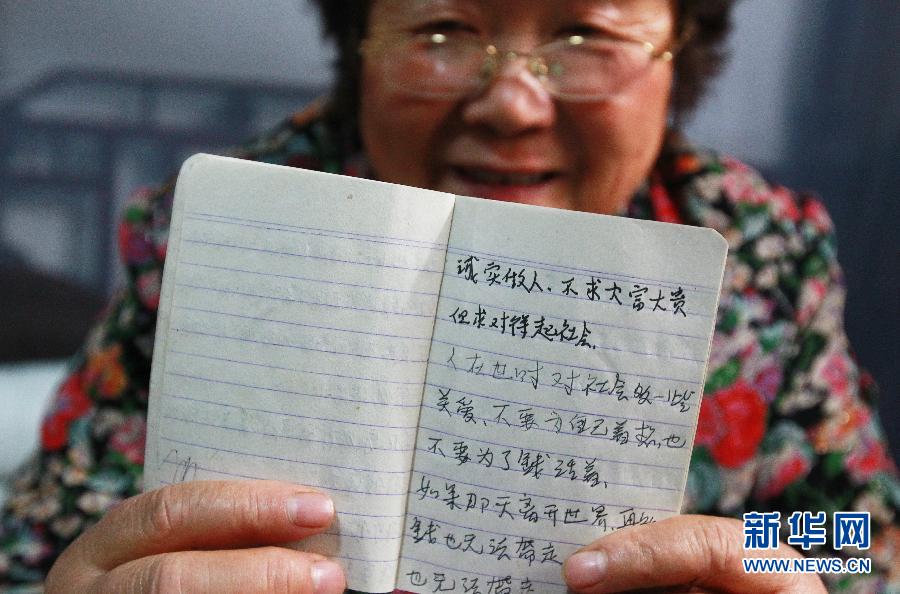 诚实做人、不求大富大贵
但求对得起社会、
人在世时对社会多一些
关爱、不要为自己着想也
不要为了钱活着、
如果那天离开世界、再多
钱也无法带走
也无法带走
新华网
WWW.NEWS.CN